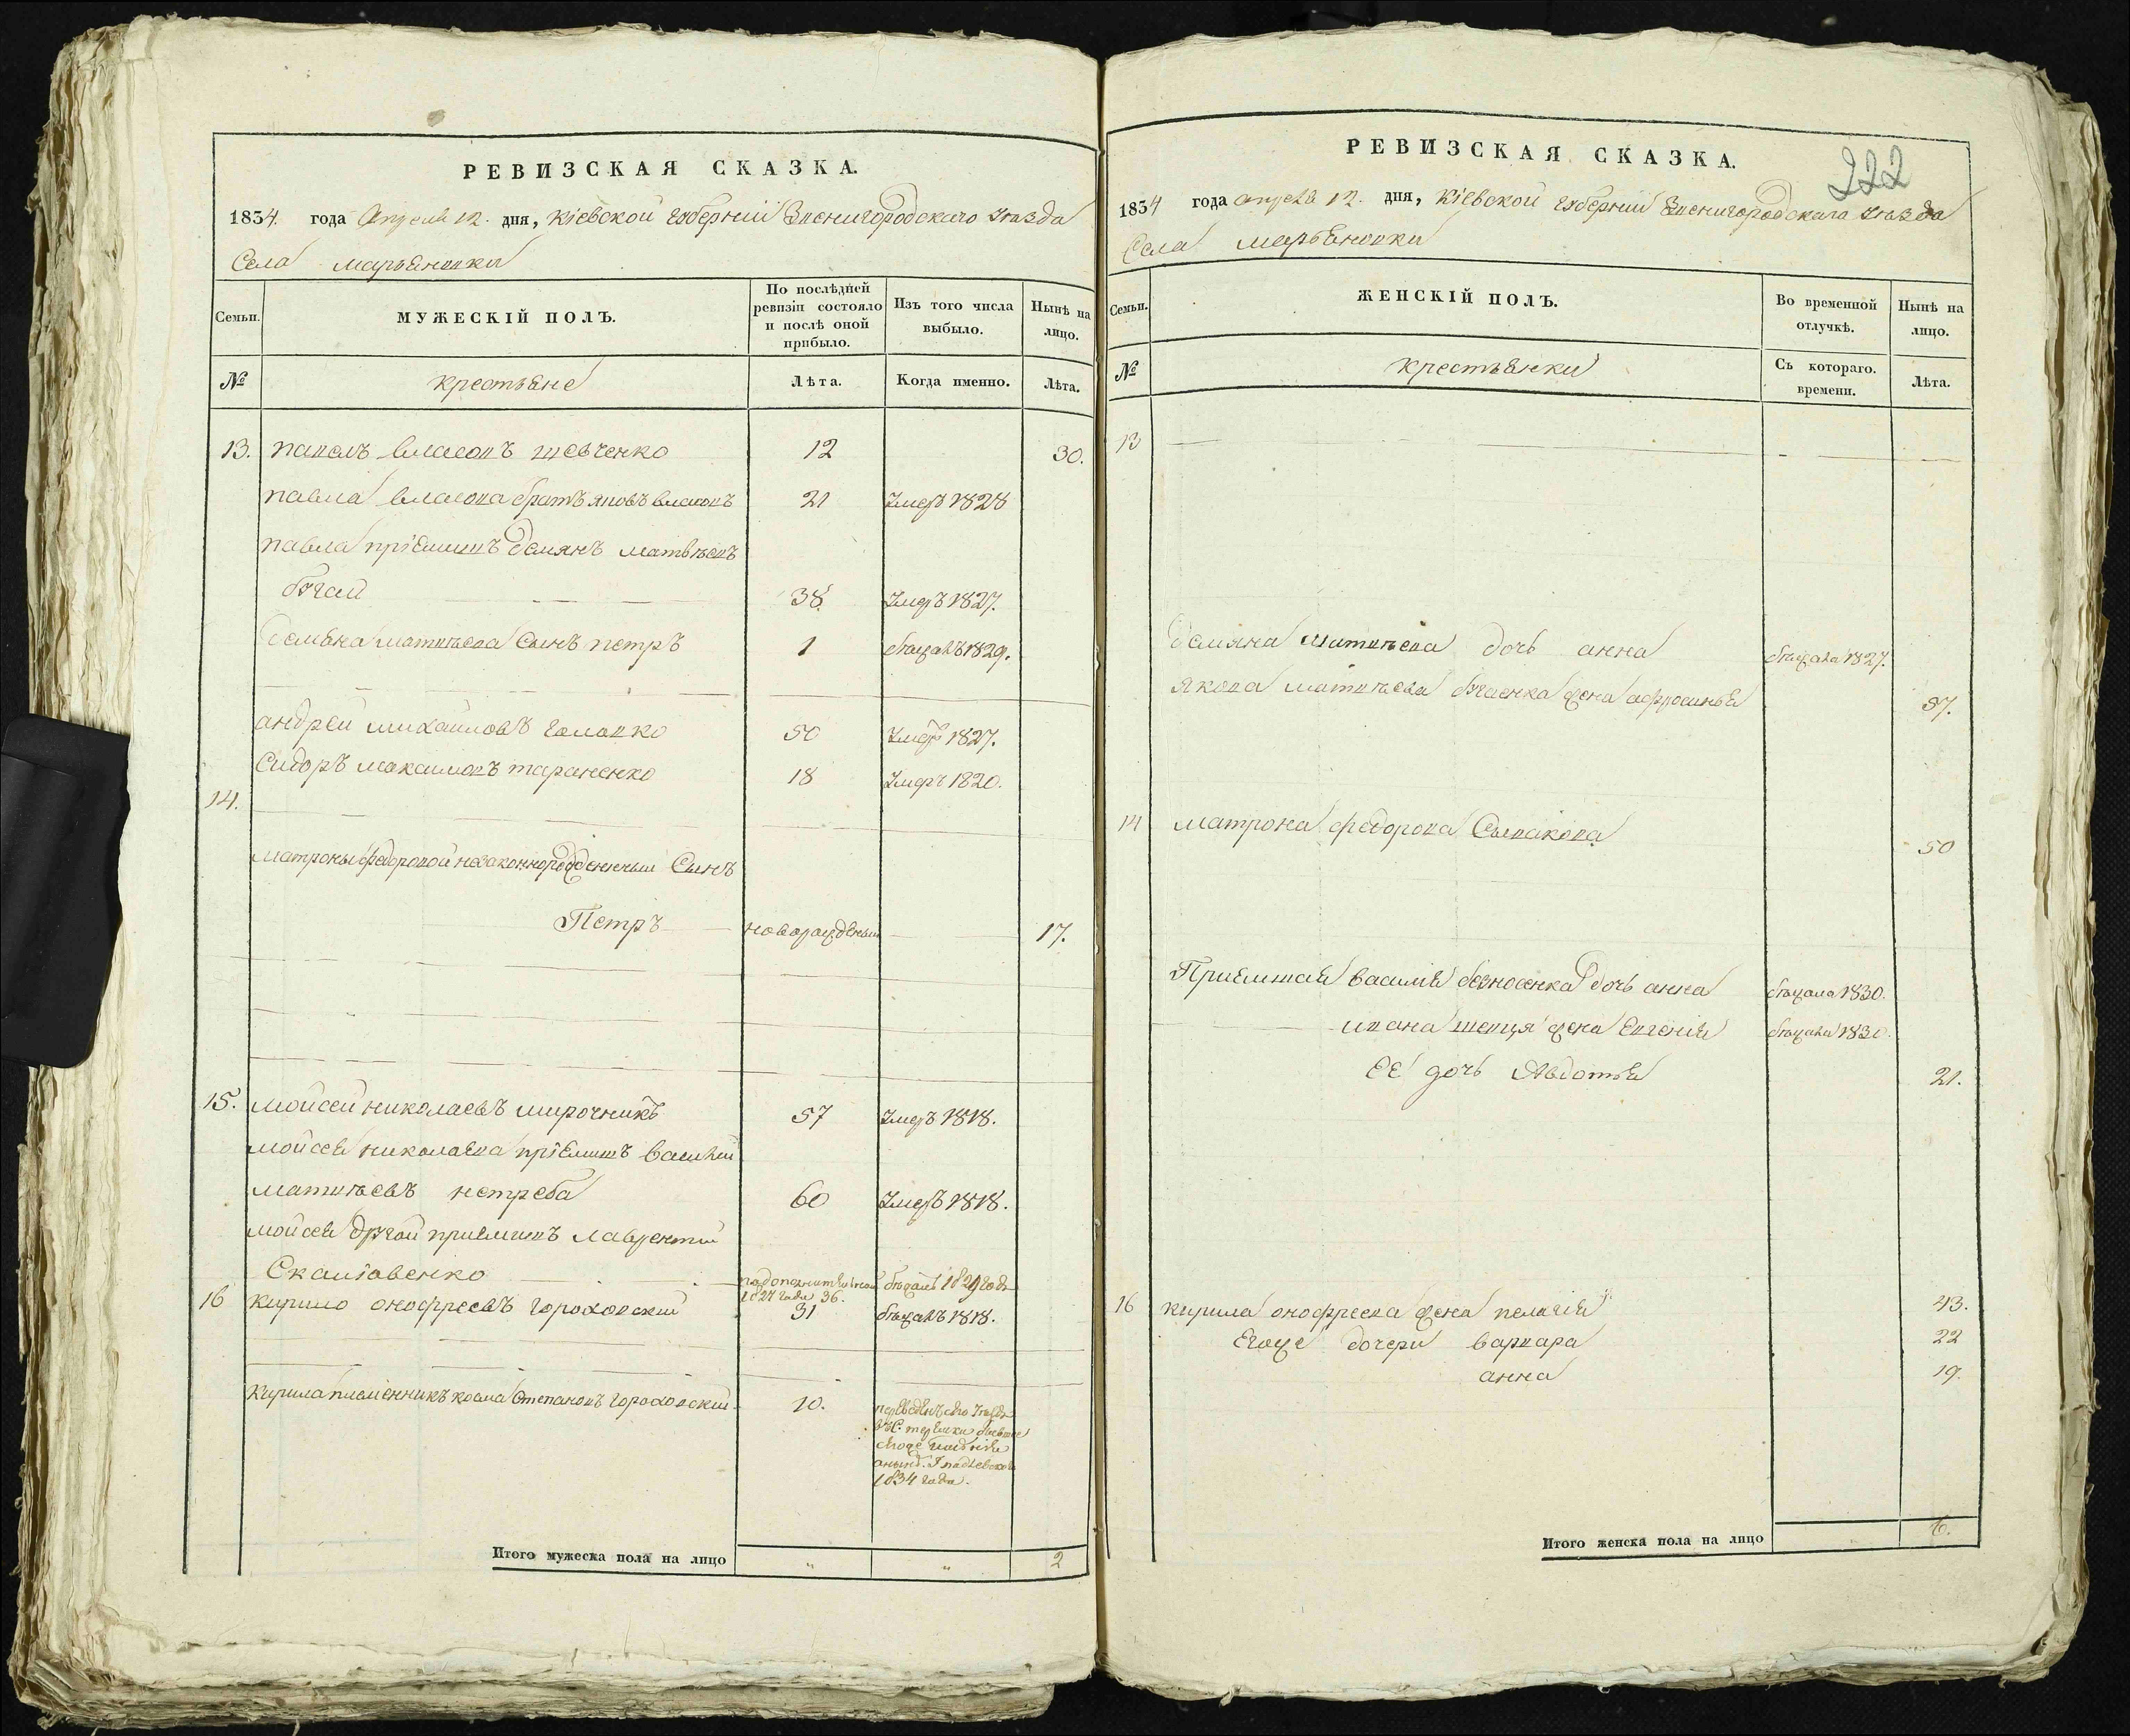 РЕВИЗСКАЯ СКАЗКА.
1834. года Апреля 12. дня, Кіевской губерніи Звенигородскаго уѣзда
Села Марьеновки
Семьи. МУЖЕСКІЙ ПОЛЪ. По послѣдней ревизіи состояло и послѣ оной прибыло. Изъ того числа выбыло. Нынѣ на лицо.
№ крестьяне Лѣта. Когда именно. Лѣта.
13. павелъ власовъ шевченко 12 30.
павла власова братъ яковъ власовъ 21 умеръ 1828
павла пріемышъ демянъ матвѣевъ
бугай 38 умеръ 1827.
демьяна матвѣева сынъ петръ 1 бѣжалъ 1829.
андрей михайловъ головко 50 умеръ 1827.
сидоръ максимовъ тараненко 18 умеръ 1820.
14.
матроны федоровой незаконнорожденный сынъ
Петръ новорожденый 17.
15. мойсей николаевъ мирочникъ 57 умеръ 1818.
мойсея николаева пріемышъ василій
матвѣевъ нетреба 60 умеръ 1818.
мойсея другой приемышъ лаврентий
подополнительной бѣжалъ 1829 года
1827 года 36.
16 кирило онофреевъ городовский 31 бѣжалъ 1818.
кирила племенникъ козма степановъ городовский 10.
1834 года.
Итого мужеска пола на лицо „ „ 2
РЕВИЗСКАЯ СКАЗКА.
222
1834 года апреля 12. дня, Кіевской губерніи Звенигородскаго уѣзда
Села Марьеновки
Семьи. ЖЕНСКІЙ ПОЛЪ. Во временной отлучкѣ. Нынѣ на лицо.
№ крестьянки Съ котораго. времени. Лѣта.
13
демяна матвѣева дочь анна бѣжала 1827.
якова матвѣева бугаенка жена афросинья 37.
14 матрона федорова 50
Приемыша василия безносенка дочь анна бѣжала 1830.
ивана шевця жена евгения бѣжала 1830.
ее дочь Явдотья 21.
16 кирила онофреева жена пелагия 43.
Егоже дочери варвара 22
анна 19.
Итого женска пола на лицо 6.